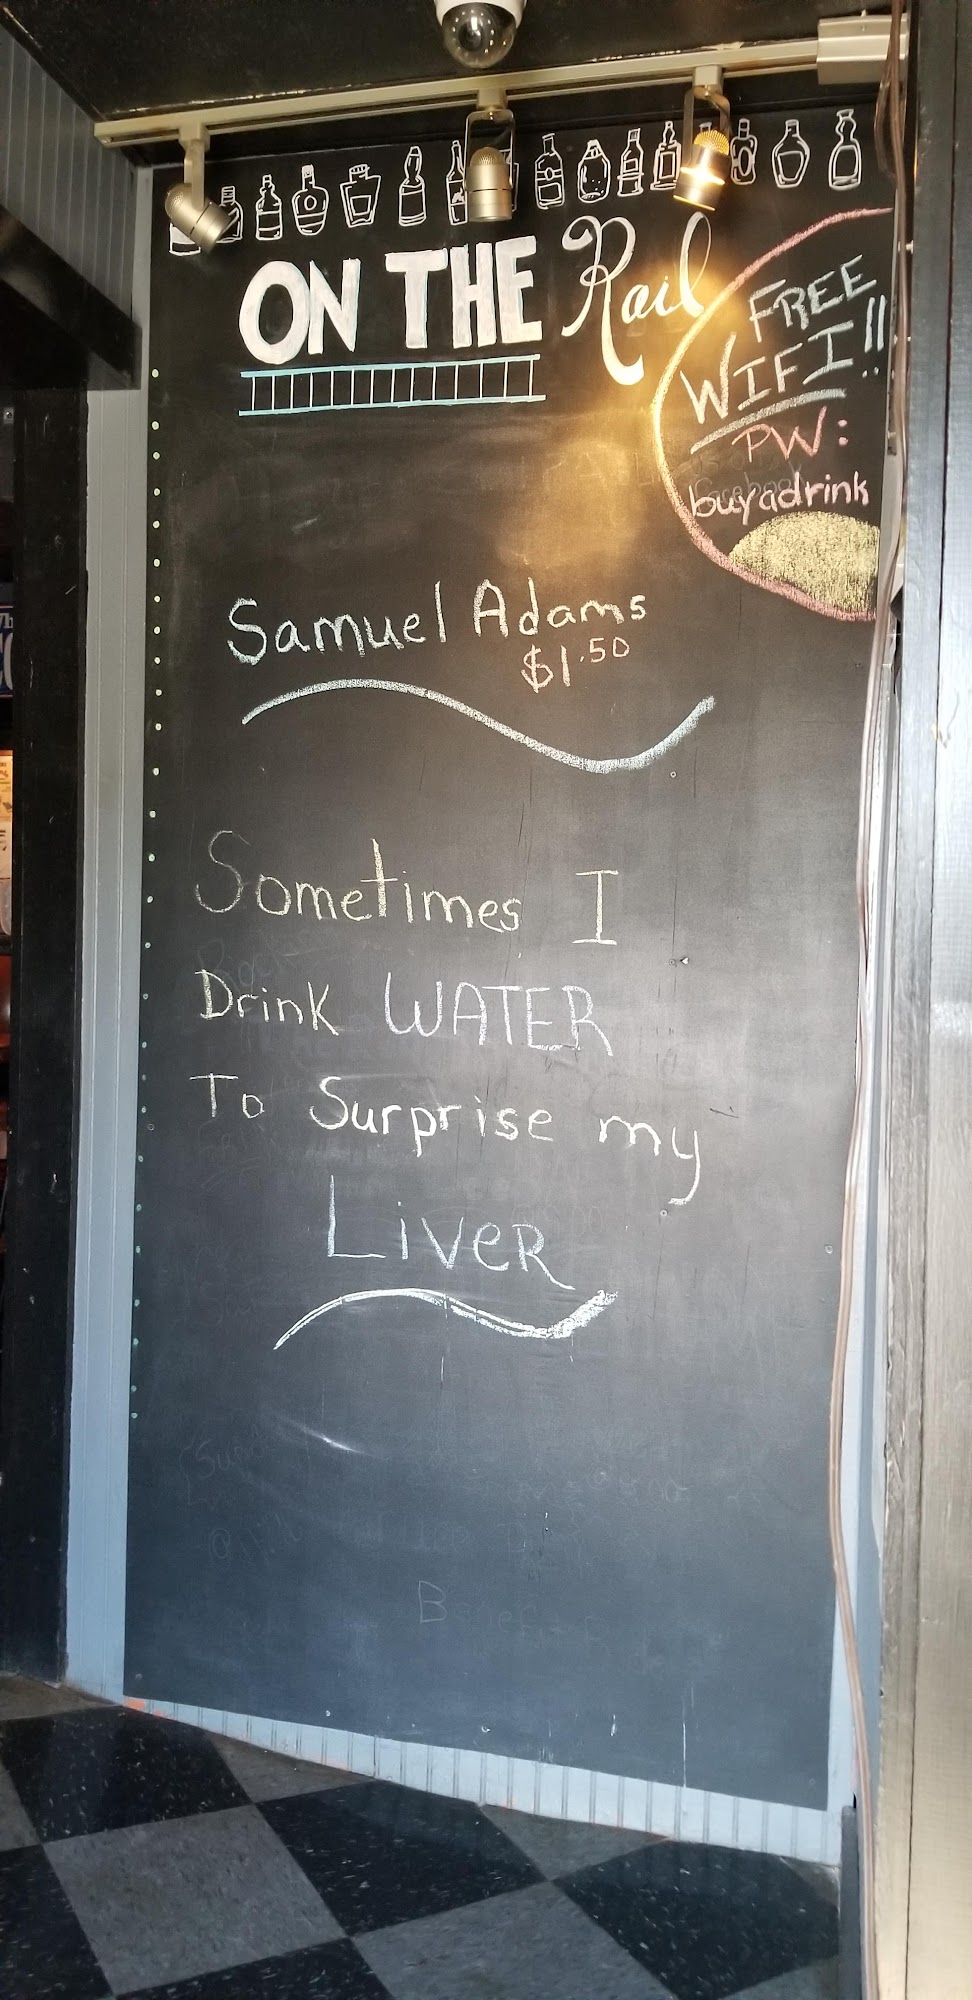 ON THE Rail
FREE
WIFI!!
PW:
buyadrink
Samuel Adams
$1.50
Sometimes I
Drink WATER
To Surprise my
LiveR